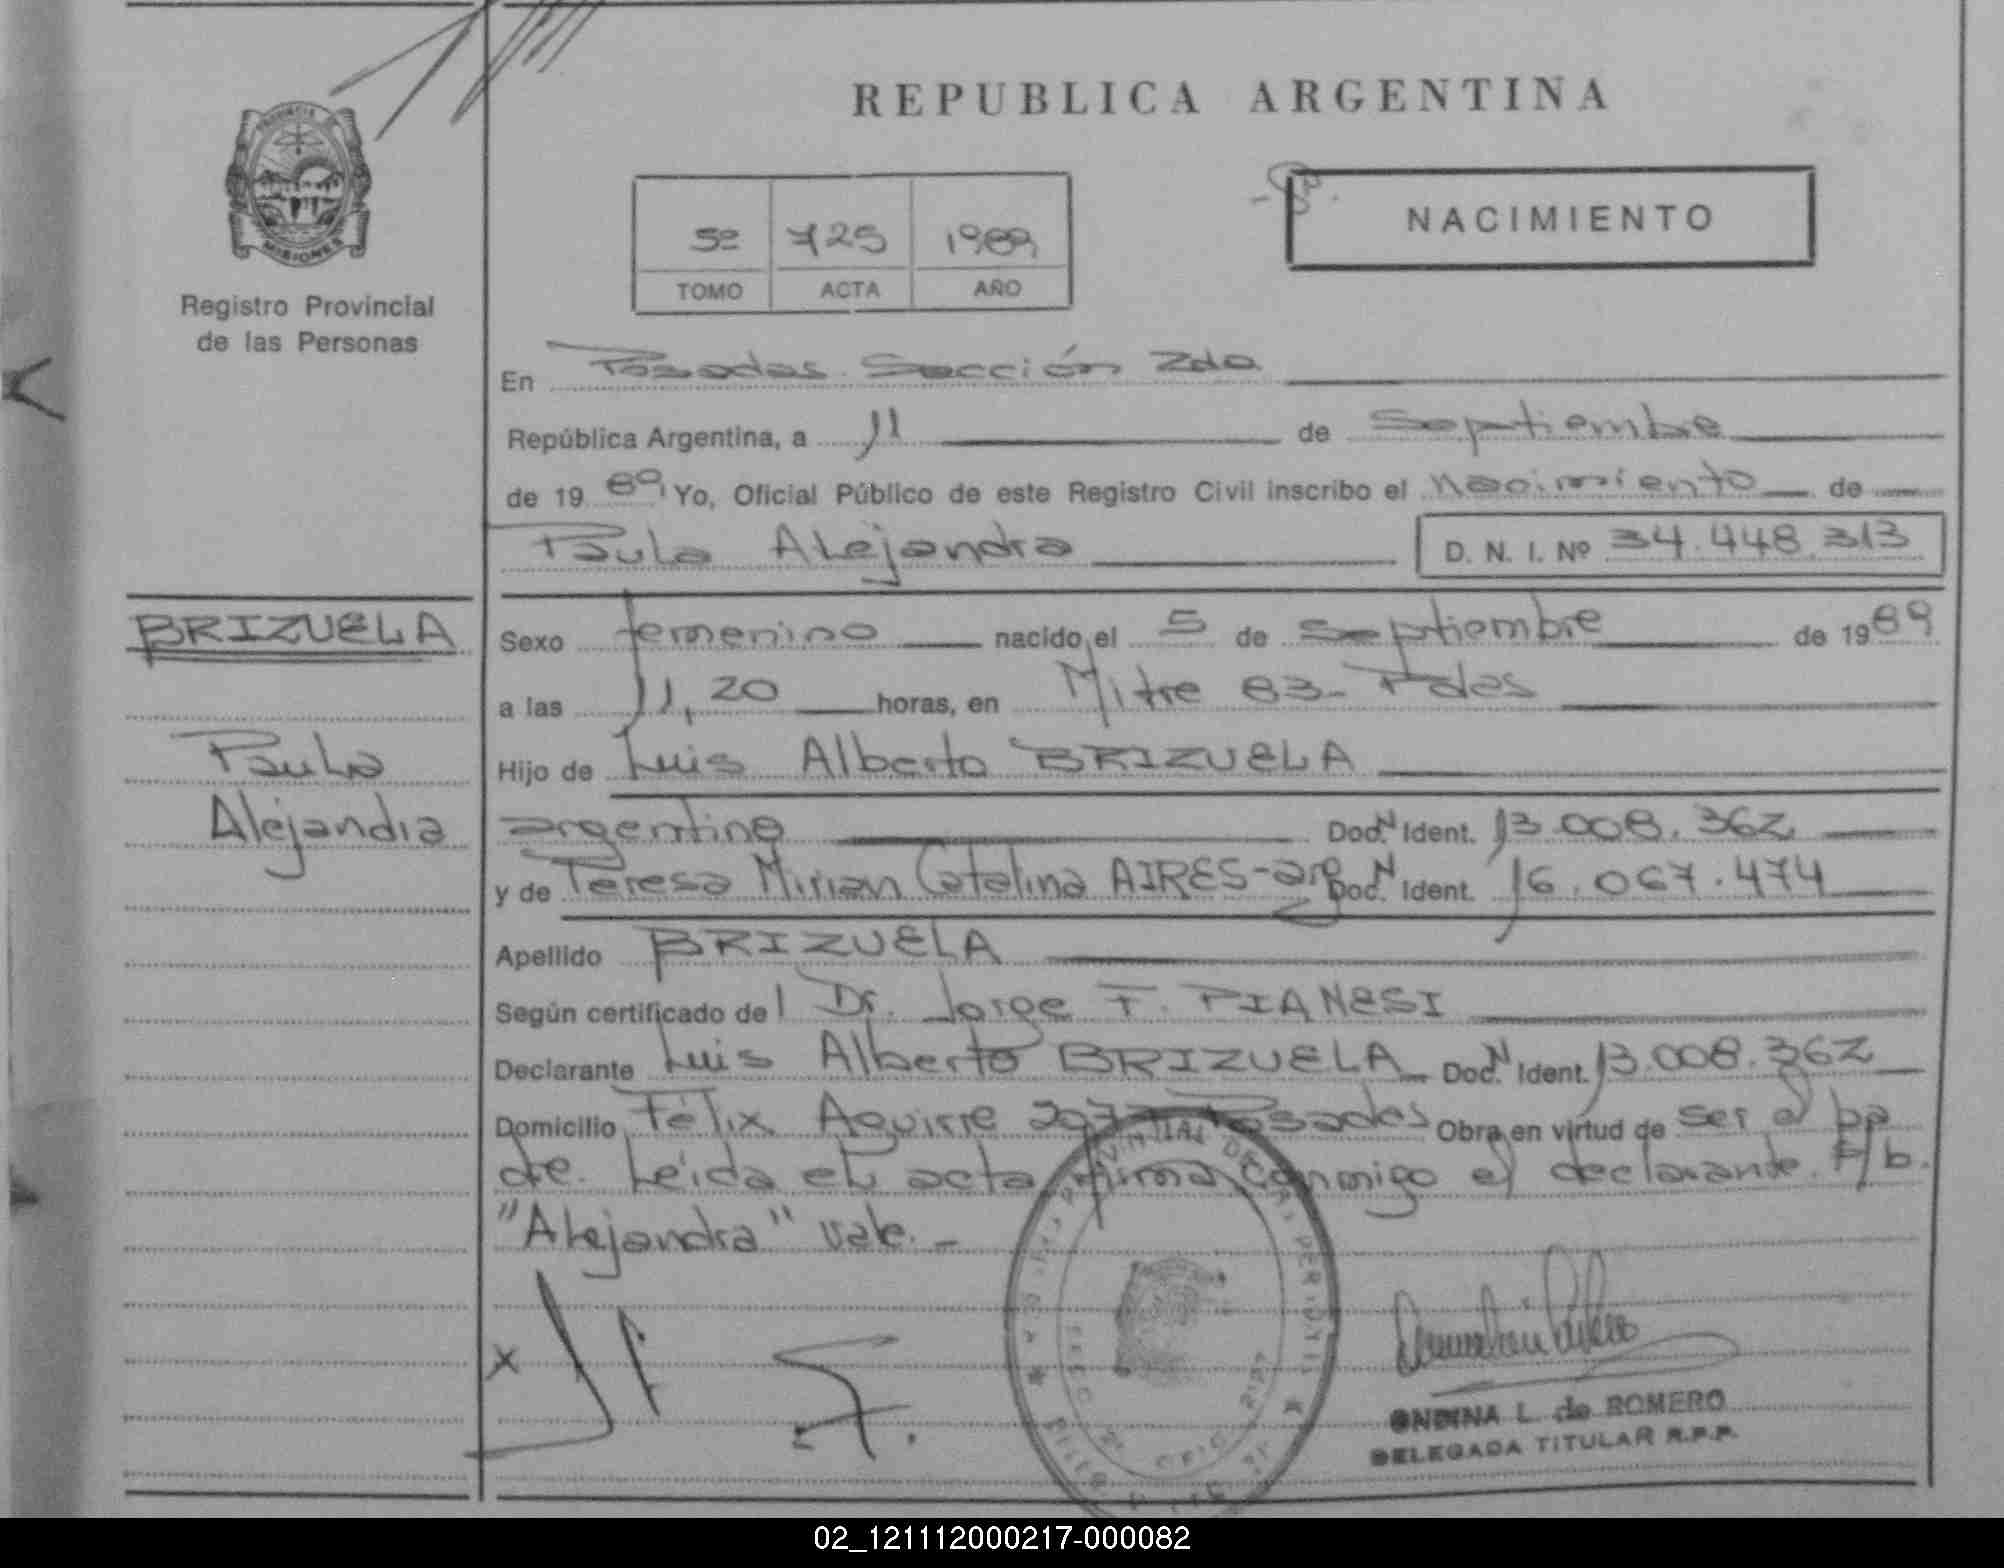 REPUBLICA ARGENTINA
MISIONES
Registro Provincial
de las Personas
NACIMIENTO
5º 725 1989
TOMO ACTA AÑO
En Posadas Sección 2da
República Argentina, a 11 de Septiembre
de 19 89 Yo, Oficial Público de este Registro Civil inscribo el Nacimiento de
Paula Alejandra D. N. I. Nº 34.448.313
BRIZUELA
Paula
Alejandra
Sexo femenino nacido el 5 de Septiembre de 1989
a las 11,20 horas, en Mitre 83- Pdas
Hijo de Luis Alberto BRIZUELA
argentino Doc. N Ident. 13.008.362
y de Teresa Mirian Catalina AIRES-arg Doc. N Ident. 16.067.474
Apellido BRIZUELA
Según certificado del Dr. Jorge F. PIANESI
Declarante Luis Alberto BRIZUELA Doc. N Ident. 13.008.362
Domicilio Félix Aguirre Posadas Obra en virtud de ser el pa
dre. Leída el acta firma conmigo el declarante. E/b.
"Alejandra" vale.-
X
ONDINA L. de ROMERO
DELEGADA TITULAR R.P.P.
02_121112000217-000082